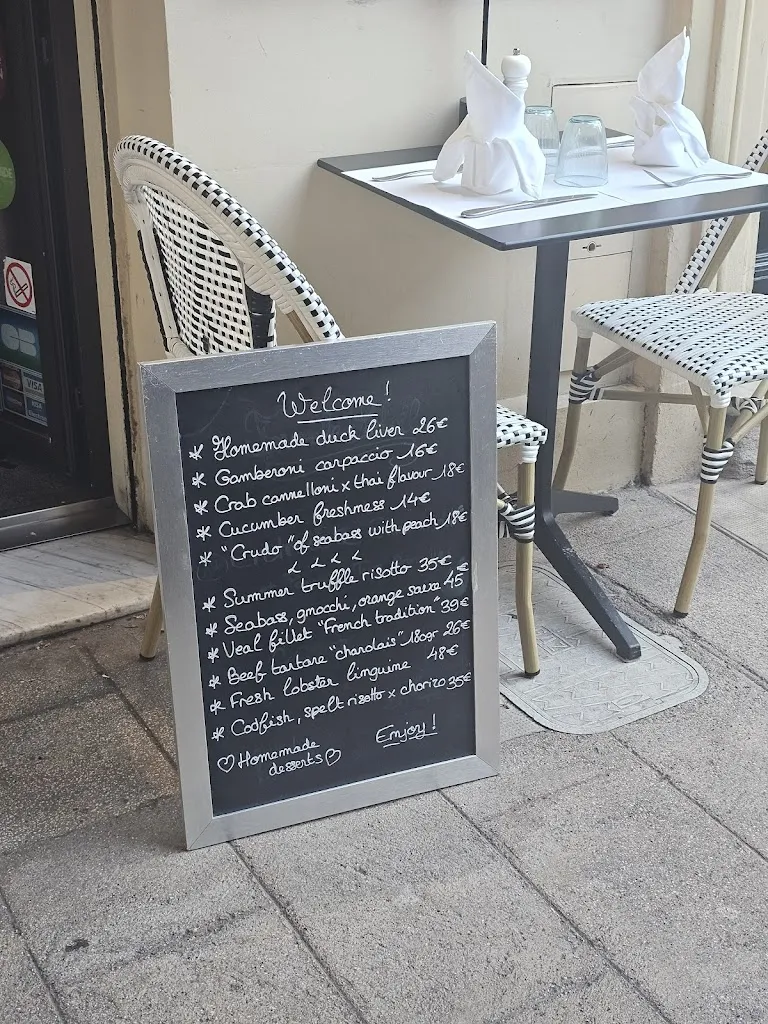 Welcome!
* Homemade duck liver 26€
* Gamberoni carpaccio 16€
* Crab cannelloni x thai flavour 18€
* Cucumber freshness 14€
* "Crudo" of seabass with peach 18€
* Summer truffle risotto 35€
* Seabass, gnocchi, orange sauce 45€
* Veal fillet "French tradition" 39€
* Beef tartare "charolais" 180gr 26€
* Fresh lobster linguine 48€
* Codfish, spelt risotto x chorizo 35€
♡ Homemade desserts ♡
Enjoy!
VISA